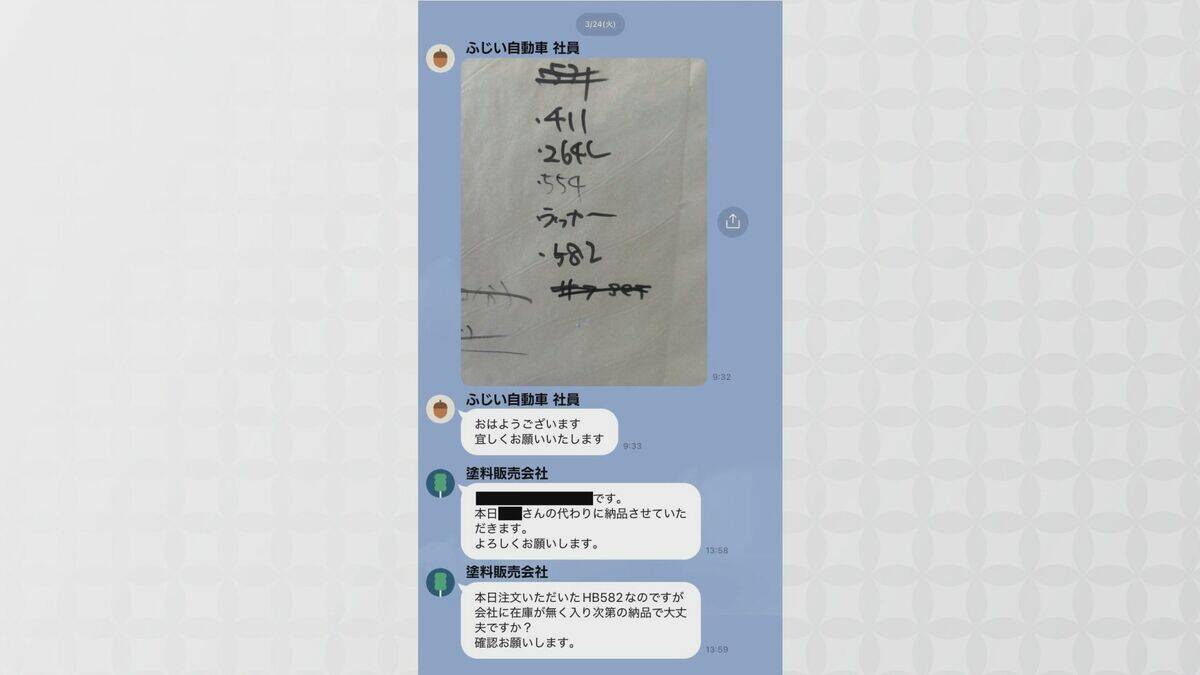 3/24(火)
ふじい自動車 社員
・411
・264L
・554
ラッカー
・582
9:32
ふじい自動車 社員
おはようございます
宜しくお願いいたします
9:33
塗料販売会社
です。
本日さんの代わりに納品させていた
だきます。
よろしくお願いします。
13:58
塗料販売会社
本日注文いただいたHB582なのですが
会社に在庫が無く入り次第の納品で大丈
夫ですか？
確認お願いします。
13:59